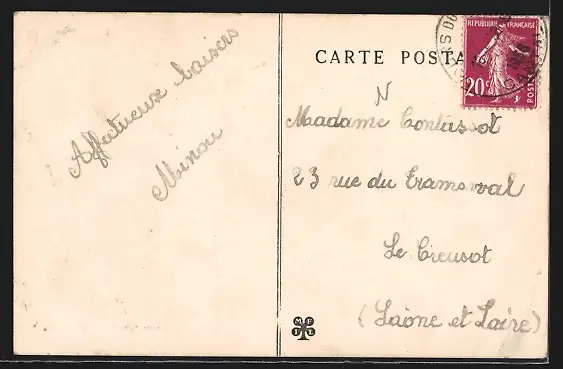 Affectueux baisers
Minou
CARTE POSTA
REPUBLIQUE FRANÇAISE
20c
POSTES
N
Madame Contassot
23 rue du Tramerval
Le Creusot
(Saône et Loire)